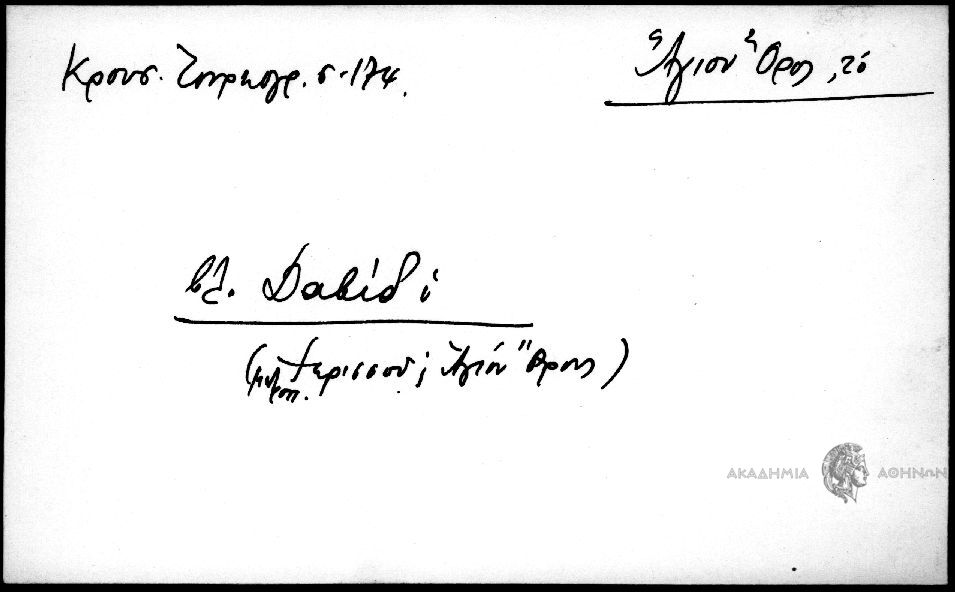 Κρουσ. Τουρκογρ. σ. 174.
Ἅγιον Ὄρος, τό
βλ. Δαβίδ ὁ
(μητροπ. Ἱερισσοῦ & Ἁγίου Ὄρους)
ΑΚΑΔΗΜΙΑ ΑΘΗΝΩΝ